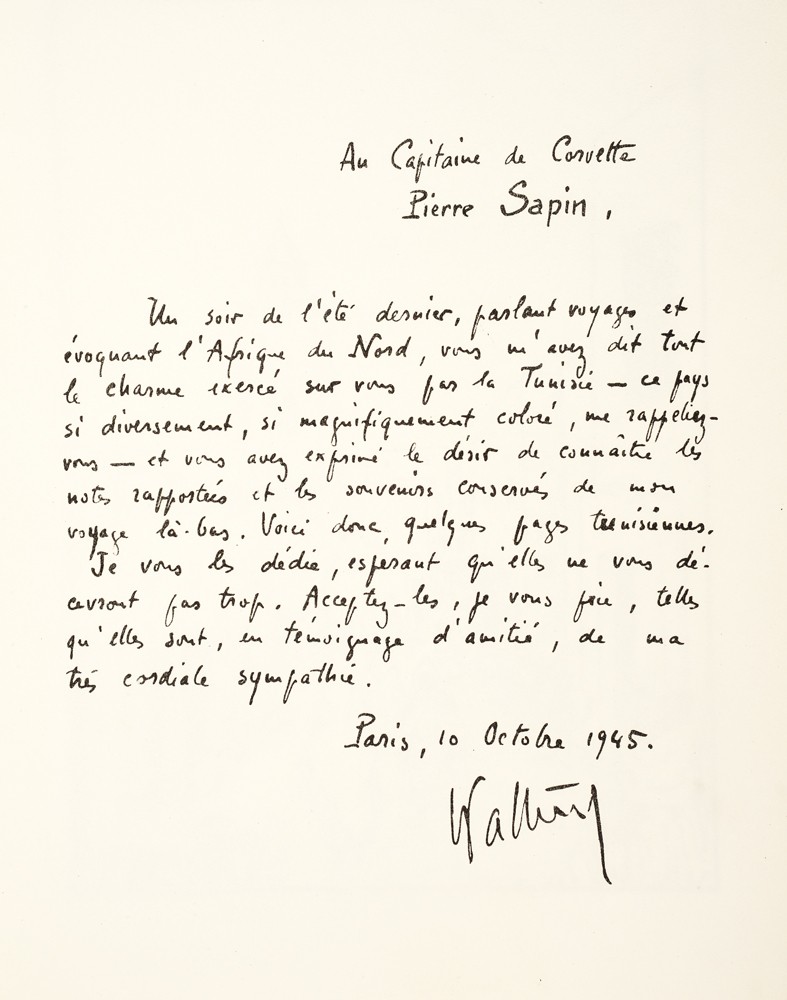 Au Capitaine de Corvette
Pierre Sapin,
Un soir de l'été dernier, parlant voyages et
évoquant l'Afrique du Nord, vous m'avez dit tout
le charme exercé sur vous par la Tunisie — ce pays
si diversement, si magnifiquement coloré, me rappeliez-
vous — et vous avez exprimé le désir de connaître les
notes rapportées et les souvenirs conservés de mon
voyage là-bas. Voici donc, quelques pages tunisiennes.
Je vous les dédie, espérant qu'elles ne vous dé-
cevront pas trop. Acceptez-les, je vous prie, telles
qu'elles sont, en témoignage d'amitié, de ma
très cordiale sympathie.
Paris, 10 Octobre 1945.